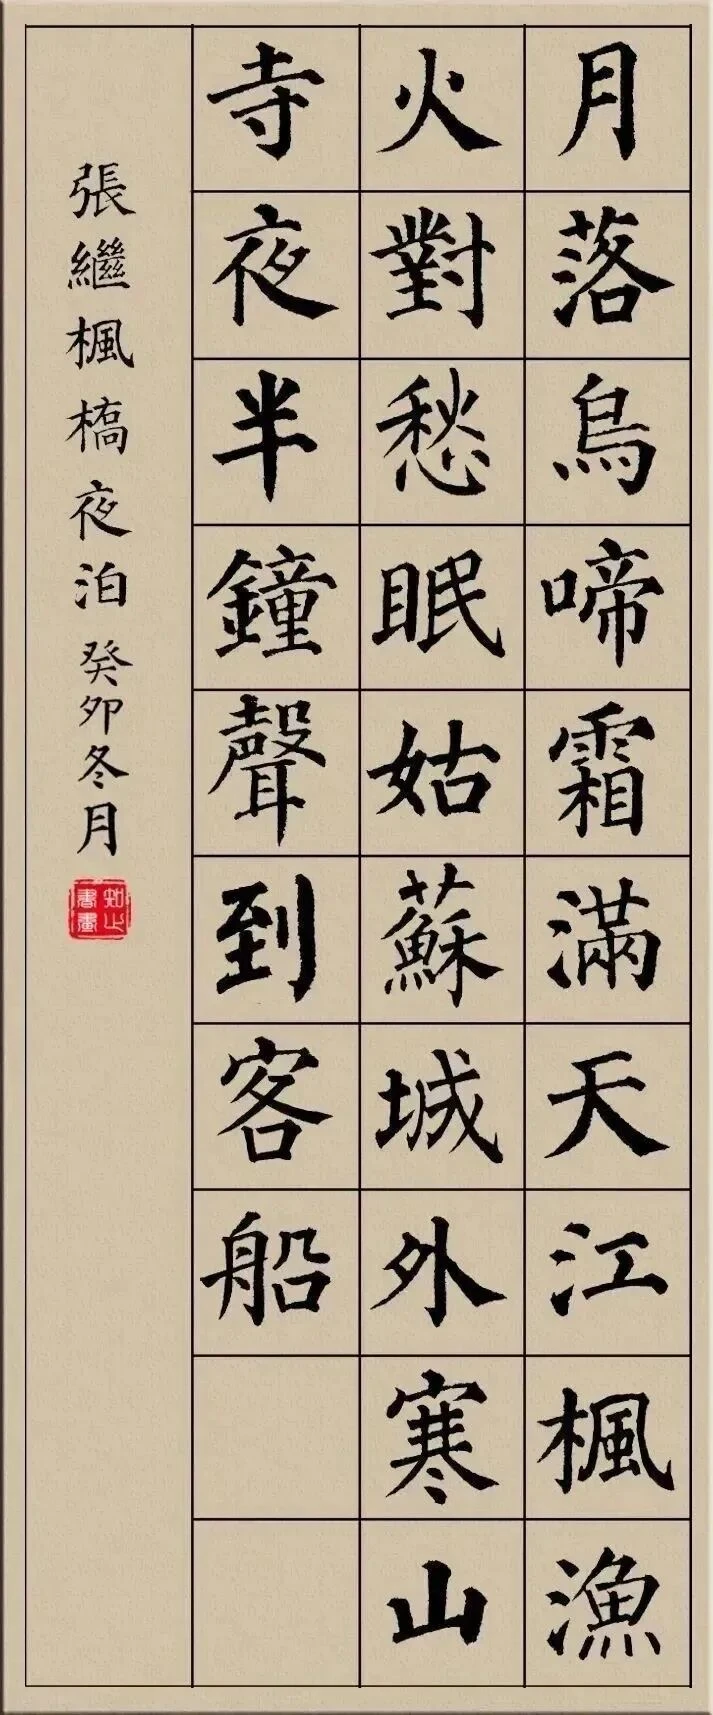 月落烏啼霜滿天江楓漁
火對愁眠姑蘇城外寒山
寺夜半鐘聲到客船
張繼楓橋夜泊癸卯冬月
知止
書畫